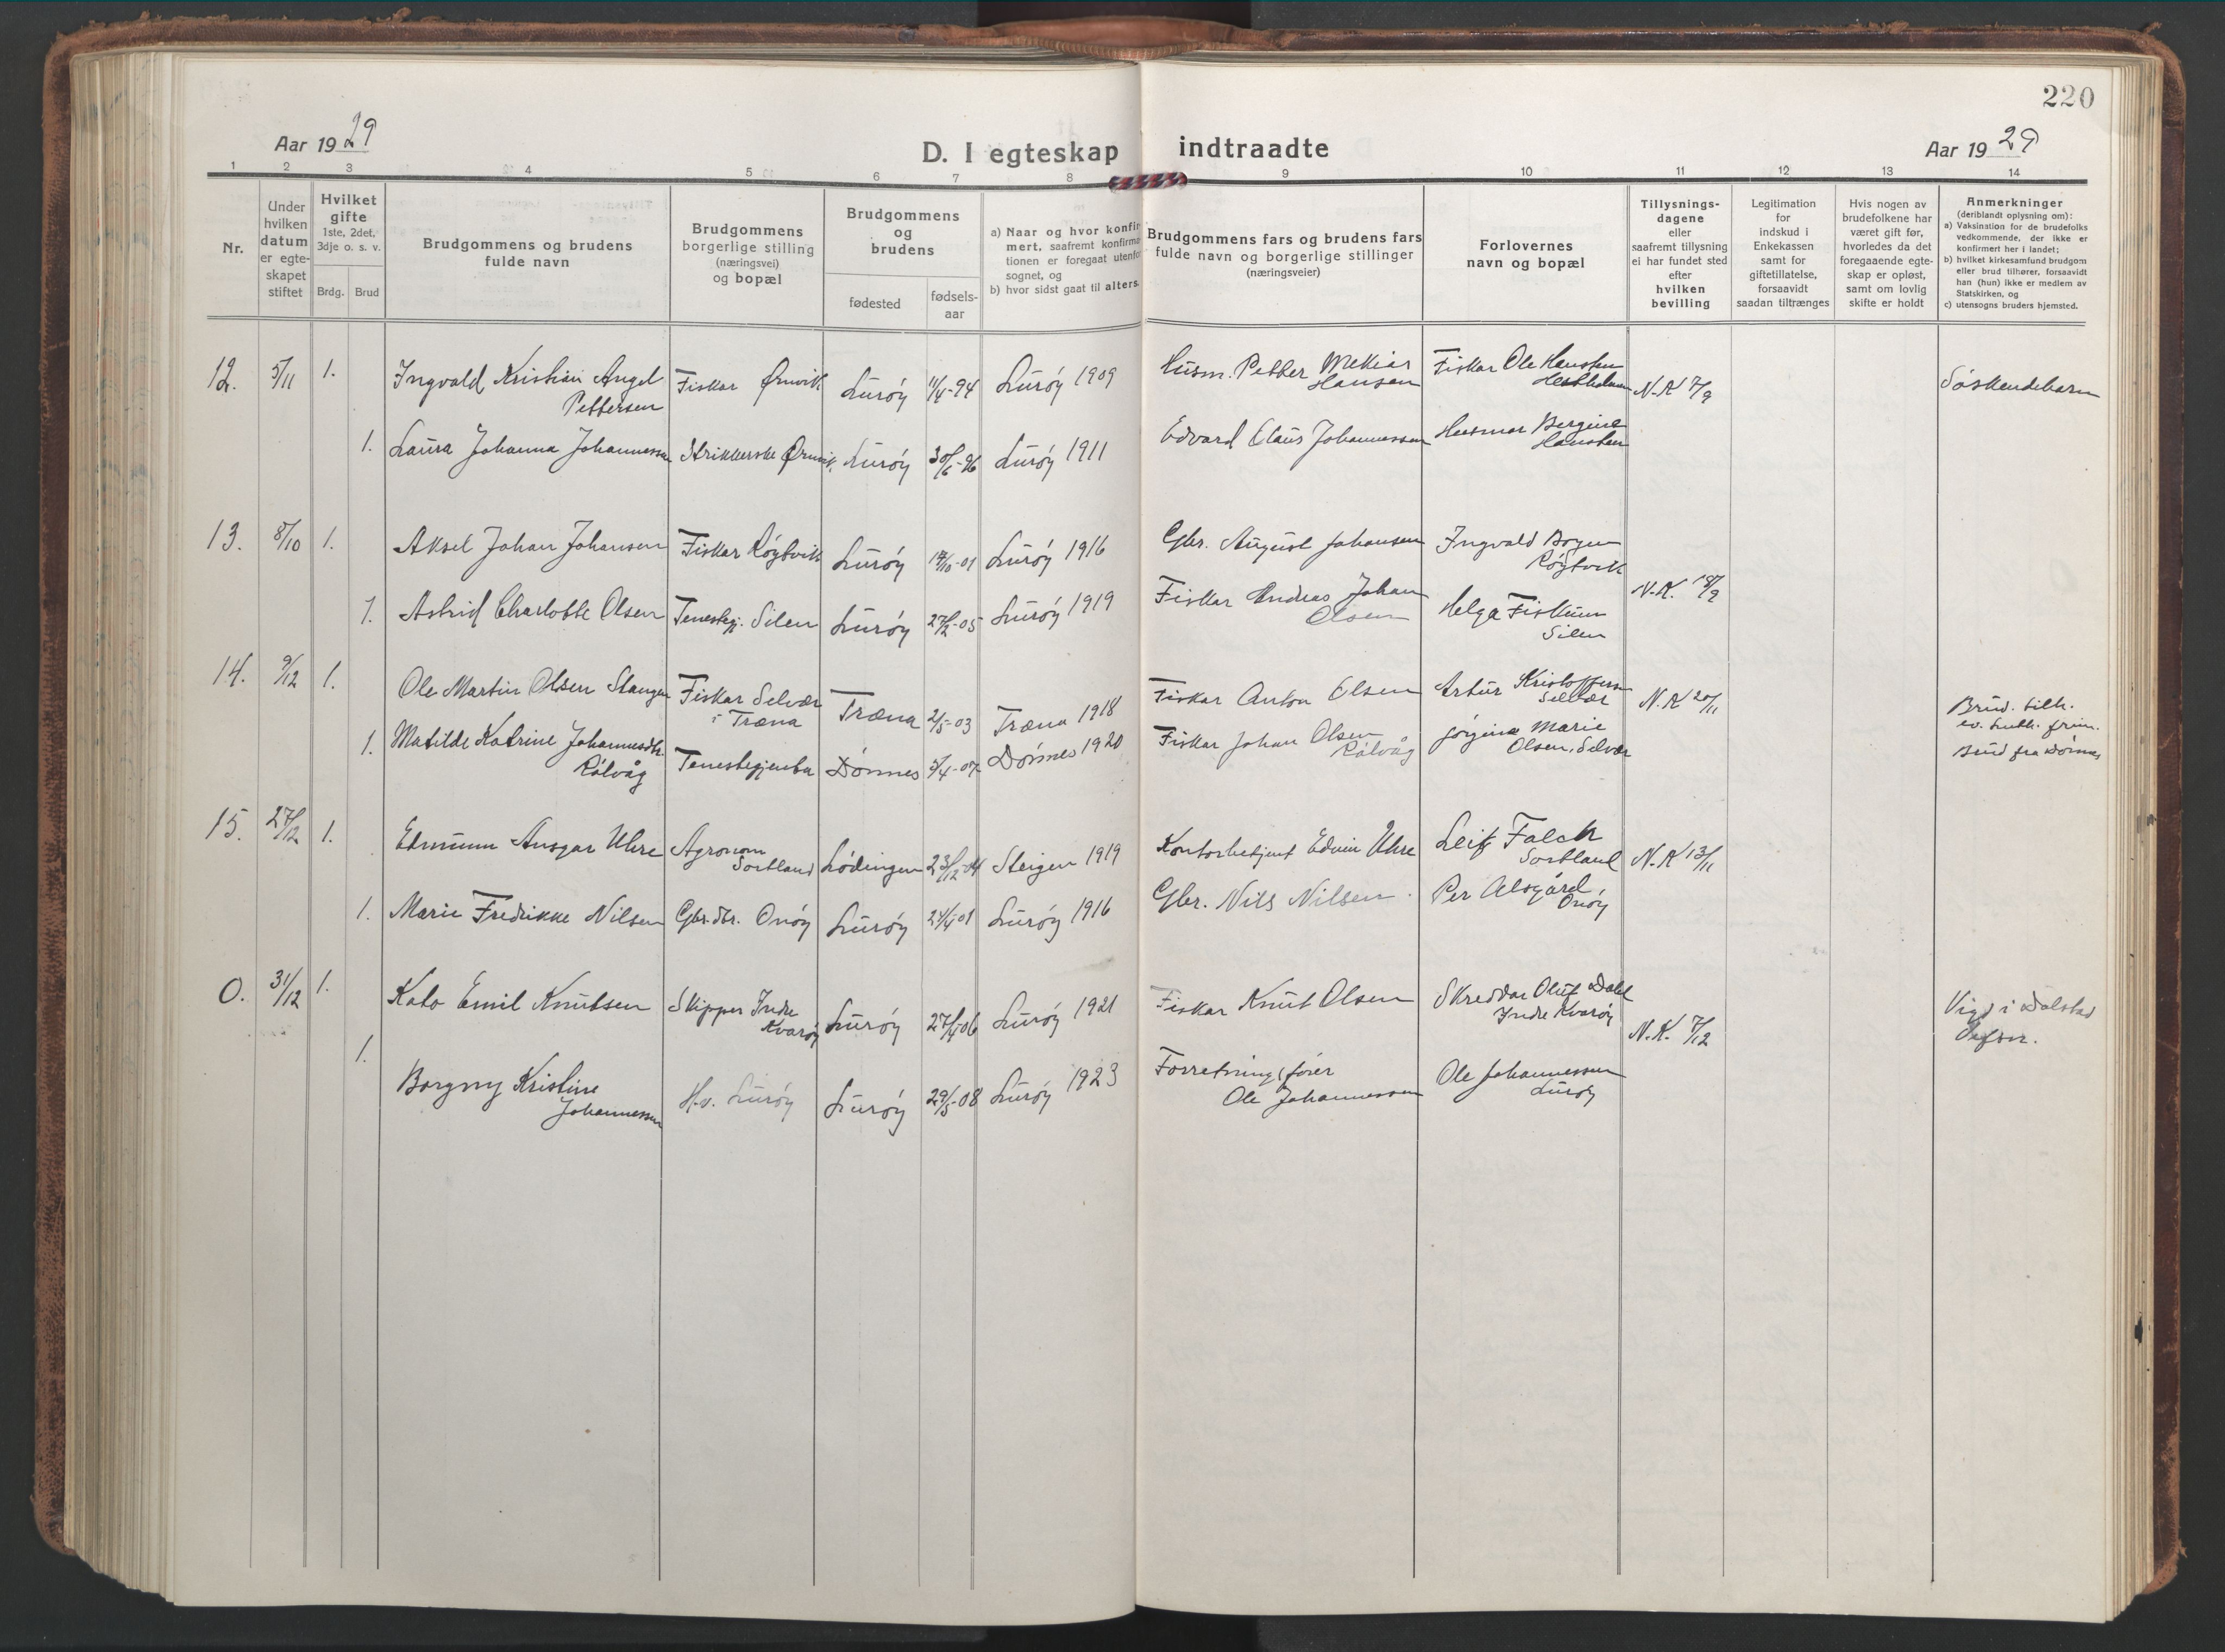 220
Aar 1929
D. I egteskap indtraadte
Aar 1929
1 2 3 4 5 6 7 8 9 10 11 12 13 14
Nr.
Under
hvilken
datum
er egte-
skapet
stiftet
Hvilket
gifte
1ste, 2det,
3dje o. s. v.
Brdg. Brud
Brudgommens og brudens
fulde navn
Brudgommens
borgerlige stilling
(næringsvei)
og bopæl
Brudgommens
og
brudens
fødested
fødsels-
aar
a) Naar og hvor konfir
mert, saafremt konfirma
tionen er foregaat utenfo
sognet, og
b) hvor sidst gaat til alters.
Brudgommens fars og brudens fars
fulde navn og borgerlige stillinger
(næringsveier)
Forlovernes
navn og bopæl
Tillysnings-
dagene
eller
saafremt tillysning
ei har fundet sted
efter
hvilken
bevilling
Legitimation
for
indskud i
Enkekassen
samt for
giftetillatelse,
forsaavidt
saadan tiltrænges
Hvis nogen av
brudefolkene har
været gift før,
hvorledes da det
foregaaende egte-
skap er opløst,
samt om lovlig
skifte er holdt
Anmerkninger
(deriblandt oplysning om):
a) Vaksination for de brudefolks
vedkommende, der ikke er
konfirmert her i landet;
b) hvilket kirkesamfund brudgom
eller brud tilhører, forsaavidt
han (hun) ikke er medlem av
Statskirken, og
c) utensogns bruders hjemsted.
12. 5/11 1. Ingvald Kristian Angel
Pettersen
Fiskar Ørnvik Lurøy 11/4-94 Lurøy 1909
Husm. Petter Mekiar
Hansen
Fiskar Ole Hansten
Hestholmen
N.K 7/9
Søskendebarn
1. Laura Johanna Johannessen Strikkerske Ørnvik, Lurøy 30/6-96 Lurøy 1911
Edvard Claus Johannessen
Husmor Bergine
Hansten
13. 8/10 1. Aksel Johan Johansen Fiskar Røytvik Lurøy 17/10-01 Lurøy 1916
Gbr. August Johansen
Ingvald Bogen
Røytvik
N.K. 18/9
1. Astrid Charlotte Olsen Tenestegj. Silen Lurøy 27/2-05 Lurøy 1919
Fiskar Andreas Johan
Olsen
Helga Fiskum
Silen
14. 9/12 1. Ole Martin Olsen Stangen
Fiskar Selvær
i Træna
Træna 2/5-03 Træna 1918
Fiskar Anton Olsen
Artur Kristoffersen
Selvær
N.K 20/11
Brud. tilh.
ev. luth. frim.
Brud fra Dønnes
1. Matilde Katrine Johannesdtr.
Rölvåg
Tenestegjenta Dönnes 5/4-07 Dönnes 1920
Fiskar Johan Olsen
Rölvåg
Jørgine Marie
Olsen, Selvær
15. 27/12 1. Edmunn Ansgar Uhre
Agronom
Sortland
Lödingen 23/12-04 Steigen 1919
Kontorbetjent Edvin Uhre
Leif Falch
Sortland
N.K 13/11
1. Marie Fredrikke Nilsen Gbr.dtr. Onøy Lurøy 24/4-01 Lurøy 1916
Gbr. Nils Nilsen.
Per Alsgård
Onøy
0. 31/12 1. Kato Emil Knutsen
Skipper Indre
Kvarøy
Lurøy 27/4-06 Lurøy 1921
Fiskar Knut Olsen
Skreddar Oluf Dahl
Indre Kvarøy
N.K. 7/12
Vigd i Dolstad
Vefsn.
1. Borgny Kristine
Johannessen
H.v. Lurøy Lurøy 29/5-08 Lurøy 1923
Forretningsfører
Ole Johannessen
Ole Johannessen
Lurøy